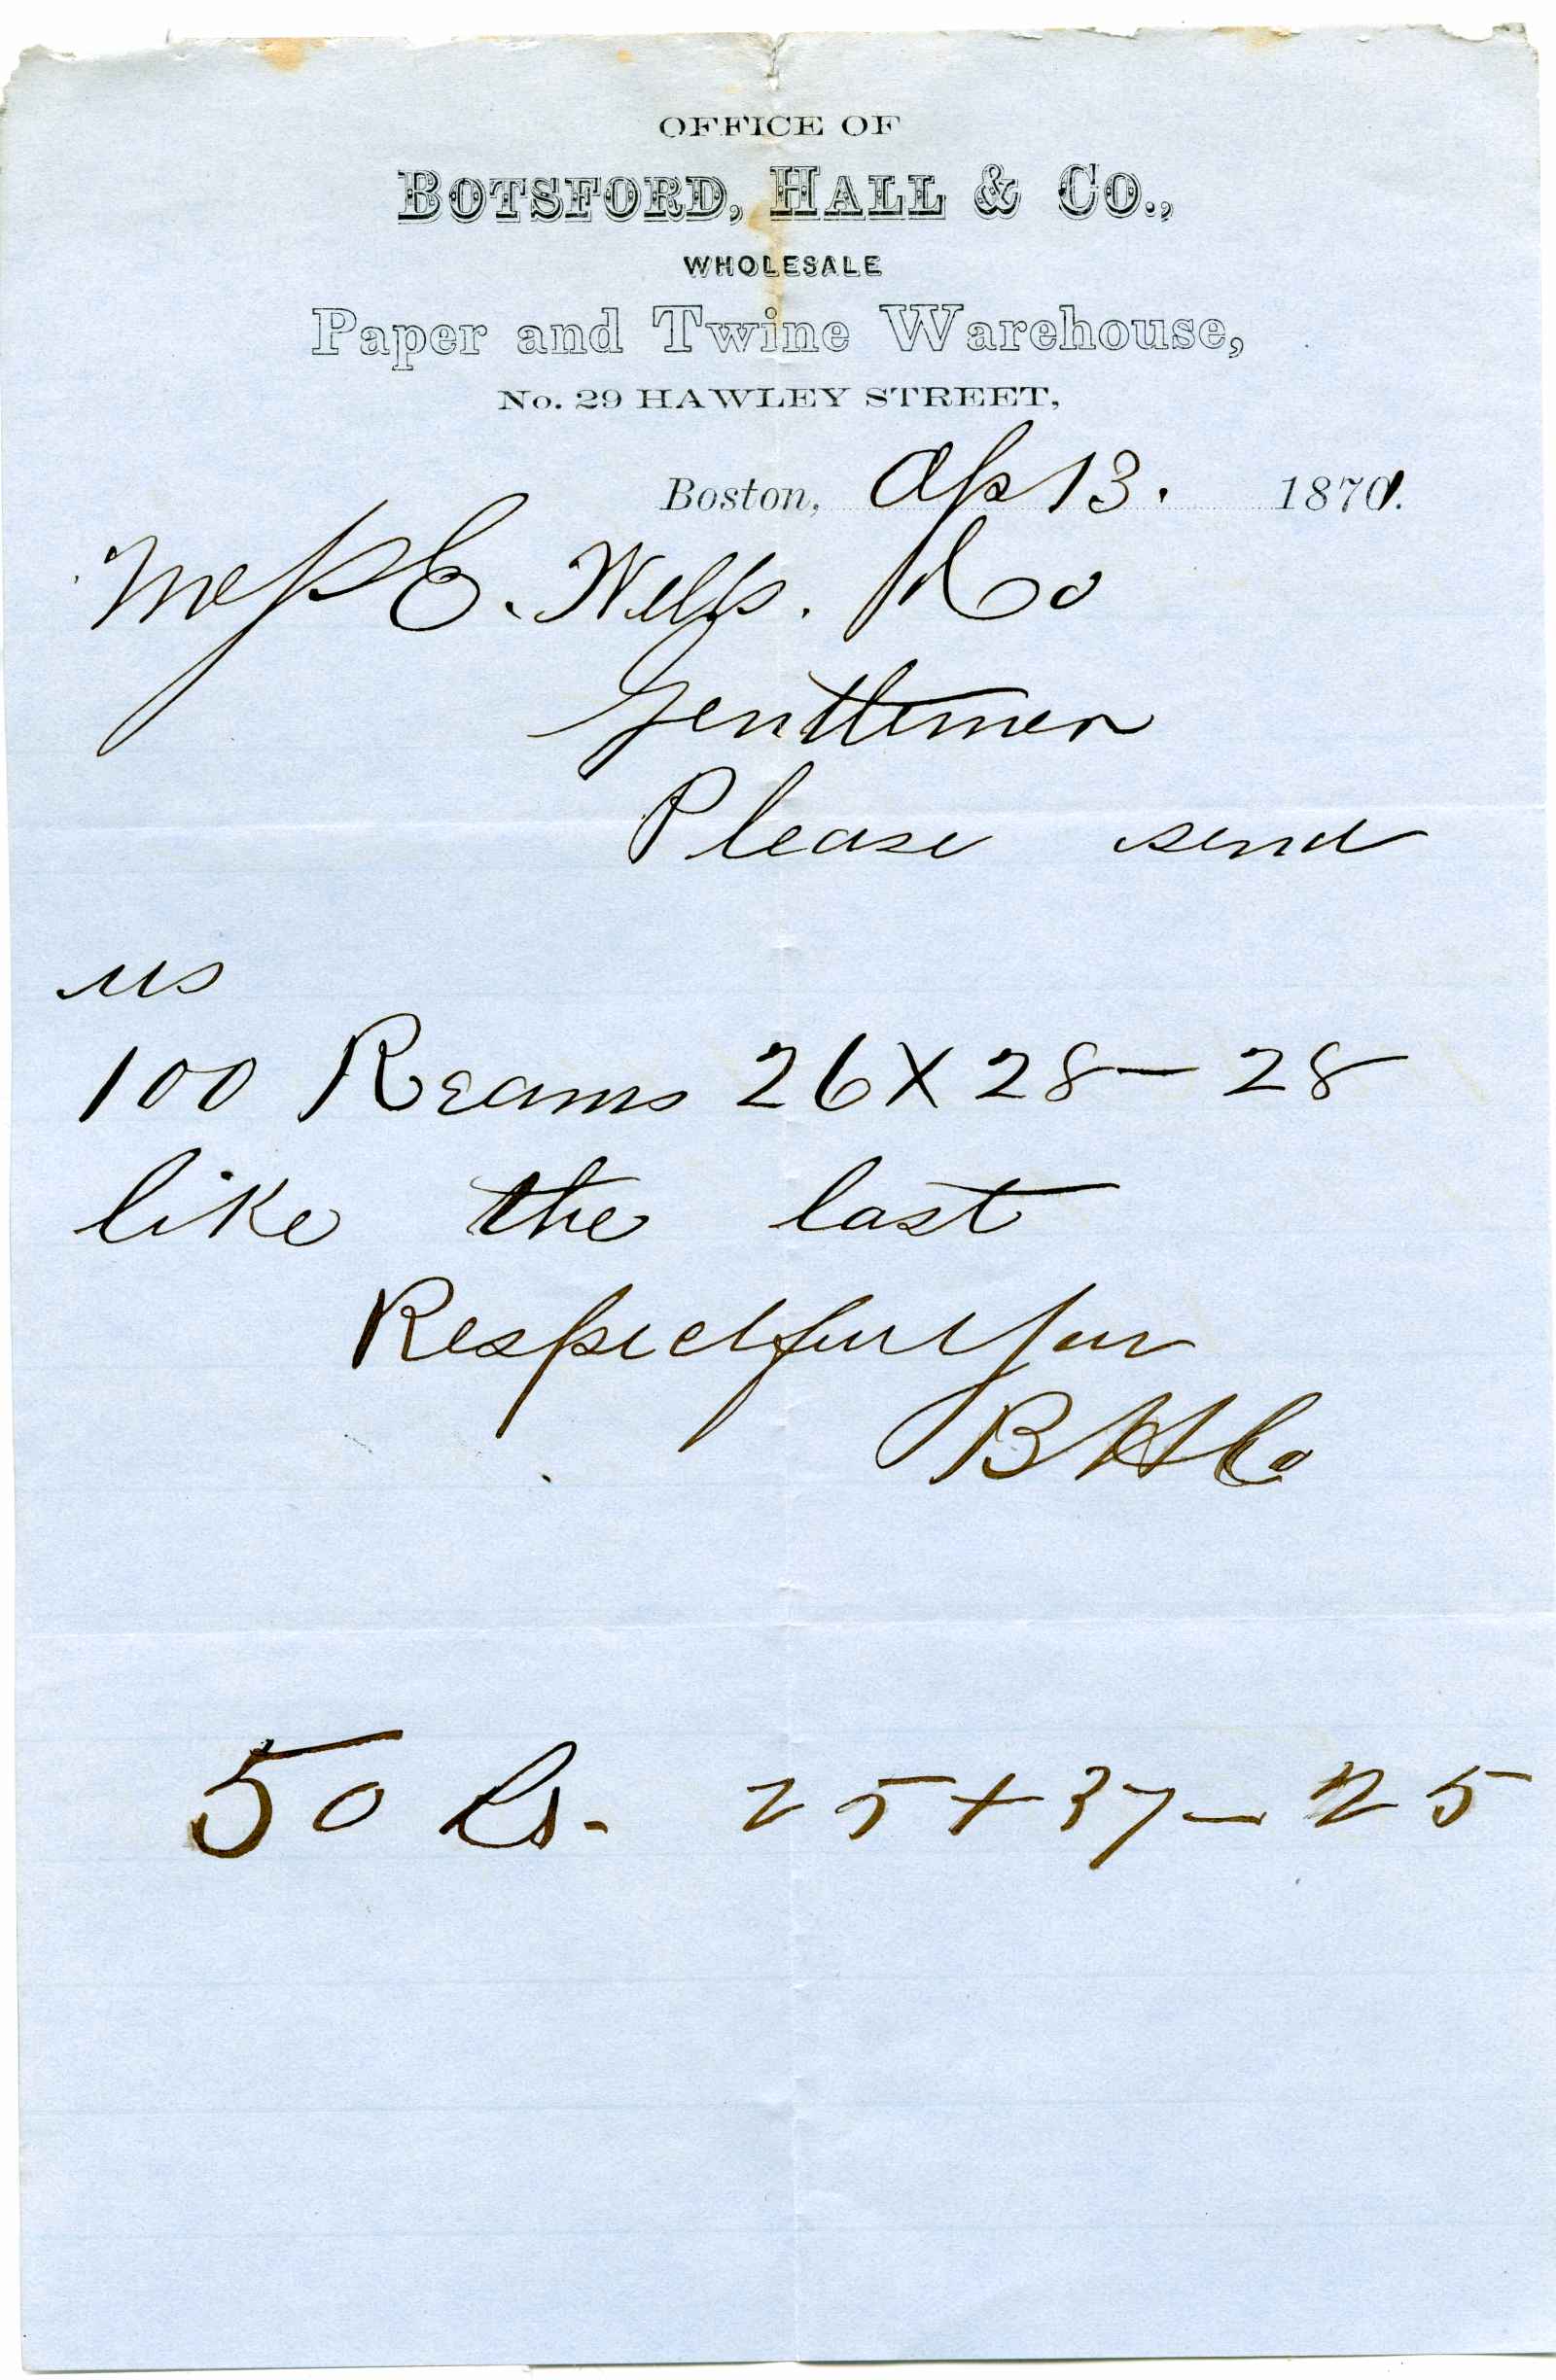 OFFICE OF
BOTSFORD, HALL & CO.,
WHOLESALE
Paper and Twine Warehouse,
No. 29 HAWLEY STREET,
Boston, Ap 13. 1871.
Mess E. Wells. & Co
Gentlemen
Please send
us
100 Reams 26 X 28 — 28
like the last
Respectful Your
B H & Co
50 Rs. 25 + 37 — 25